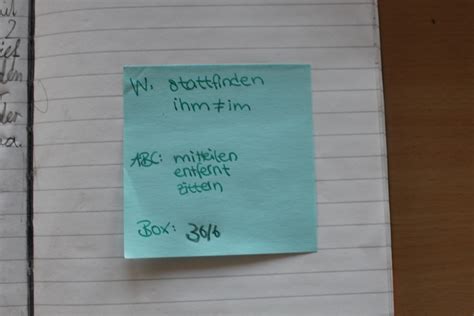 2
den
W: stattfinden
ihm ≠ im
ABC: mitteilen
entfernt
zittern
Box: 36/6